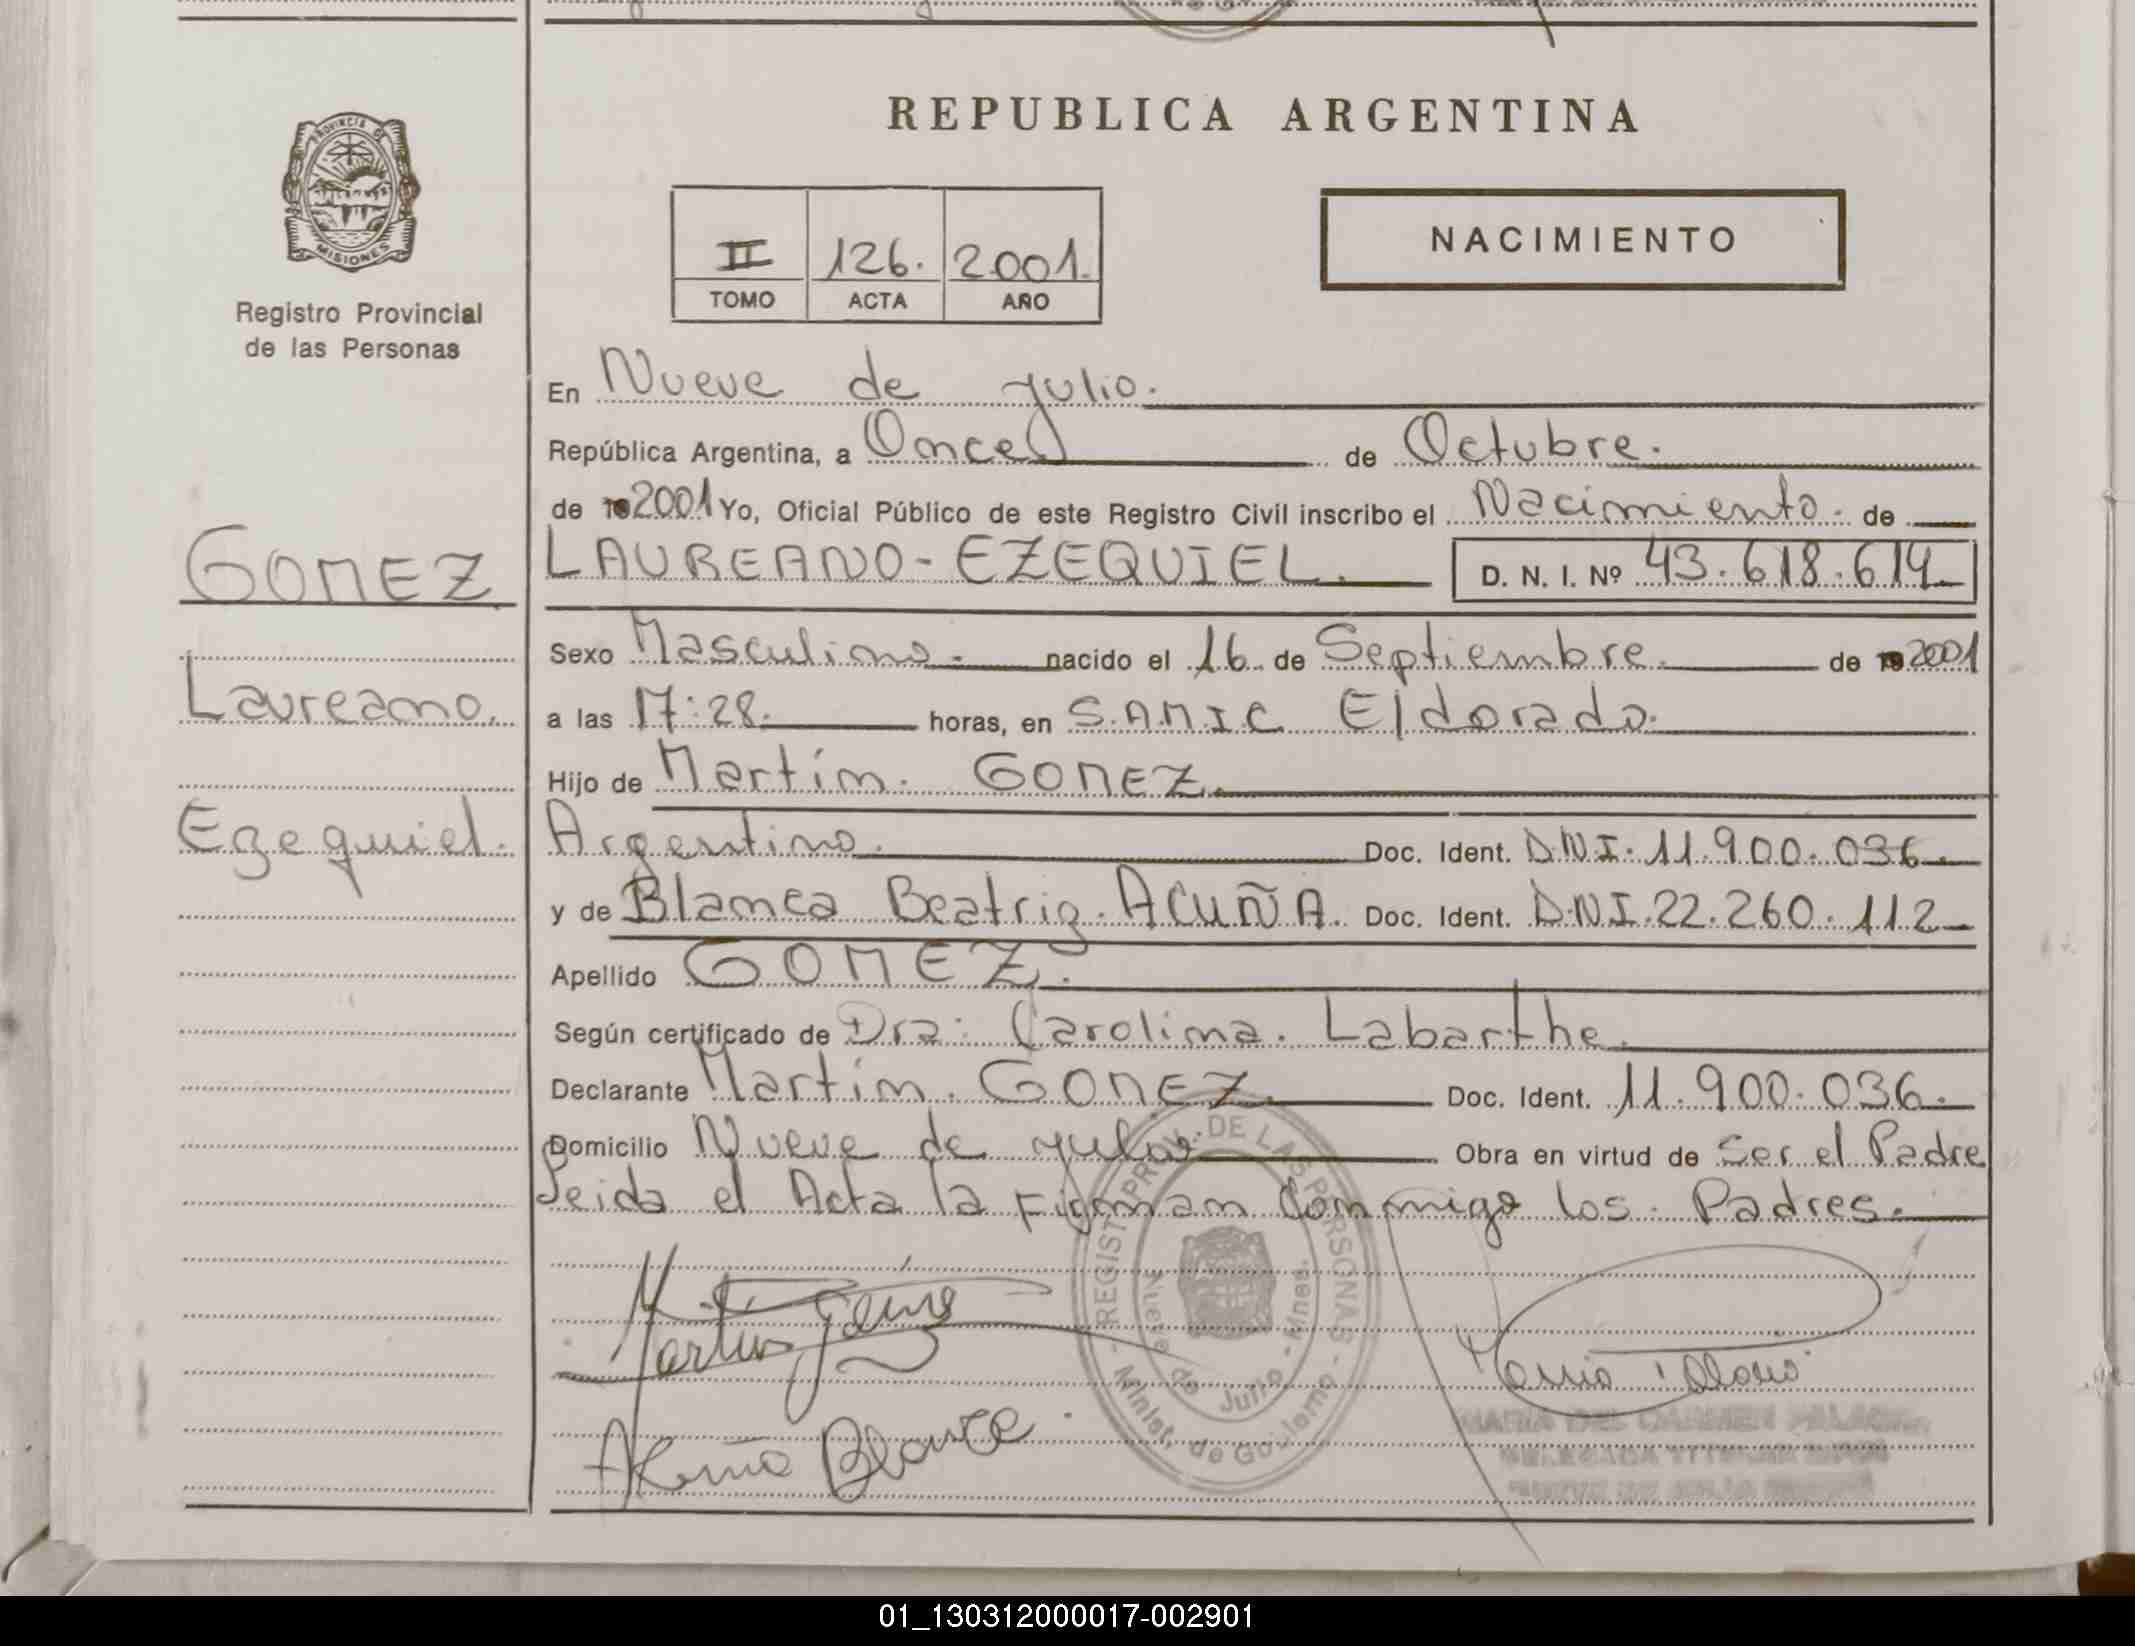 REPUBLICA ARGENTINA
PROVINCIA DE
MISIONES
Registro Provincial
de las Personas
II 126. 2001.
TOMO ACTA AÑO
NACIMIENTO
En Nueve de julio.
República Argentina, a Once de Octubre.
de 2001 Yo, Oficial Público de este Registro Civil inscribo el Nacimiento. de
GOMEZ
LAUREANO-EZEQUIEL. D. N. I. Nº 43.618.614
Sexo Masculino. nacido el 16 de Septiembre. de 2001
Laureano.
a las 17:28. horas, en S.A.M.I.C Eldorado.
Hijo de Martín. GOMEZ.
Ezequiel.
Argentino. Doc. Ident. D.N.I. 11.900.036.
y de Blanca Beatriz. ACUÑA. Doc. Ident. D.N.I. 22.260.112
Apellido GOMEZ.
Según certificado de Dra: Carolina. Labarthe.
Declarante Martín. GOMEZ. Doc. Ident. 11.900.036.
Domicilio Nueve de julio. Obra en virtud de Ser el Padre
Leida el Acta la Firman Conmigo los Padres.
REGIST. PROV. DE LAS PERSONAS
Nueve de Julio - Mnes.
Minist. de Gobierno
Acuña Blanca
MARIA DEL CARMEN
01_130312000017-002901